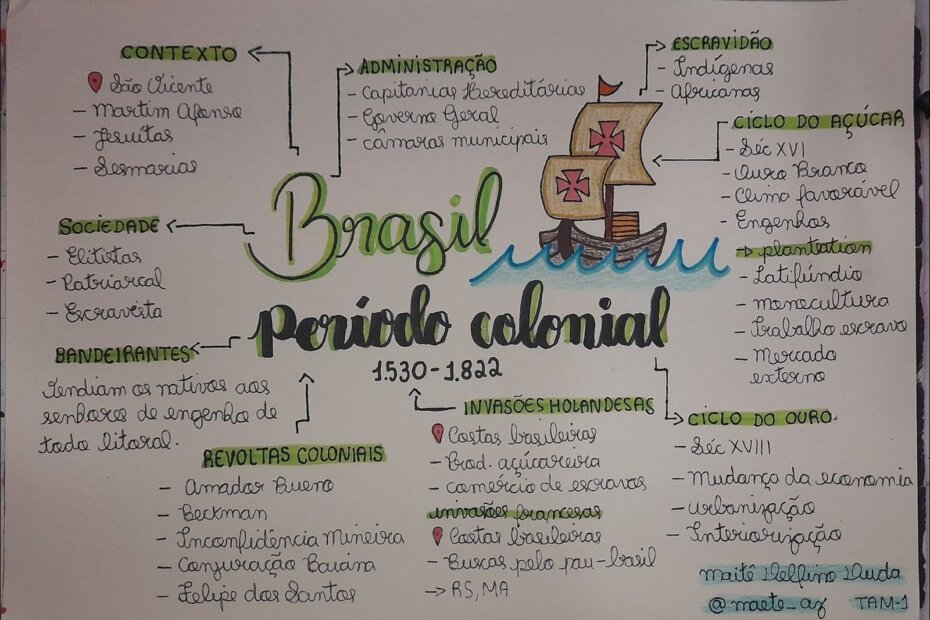 CONTEXTO
São Vicente
- Martim Afonso
- Jesuítas
- Sesmarias
ADMINISTRAÇÃO
- Capitanias Hereditárias
- Governo Geral
- câmaras municipais
ESCRAVIDÃO
- Indígenas
- Africanas
CICLO DO AÇÚCAR
- Séc XVI
- Ouro Branco
- Clima favorável
- Engenhos
→ plantation
- Latifúndio
- monocultura
- Trabalho escravo
- Mercado
externo
SOCIEDADE
- Elitistas
- Patriarcal
- Escravista
Brasil
Período colonial
1.530-1.822
BANDEIRANTES
Vendiam os nativos aos
senhores de engenho de
todo litoral.
REVOLTAS COLONIAIS
- Amador Bueno
- Beckman
- Inconfidência Mineira
- Conjuração Baiana
- Felipe dos Santos
INVASÕES HOLANDESAS
Costas brasileiras
- Prod. açúcareira
- comércio de escravos
invasões francesas
Costas brasileiras
- Buscas pelo pau-brasil
→ RS, MA
CICLO DO OURO
- Séc XVIII
- Mudança da economia
- urbanização
- Interiorização
maitê Delfino Duda
@maete_az TAM-1